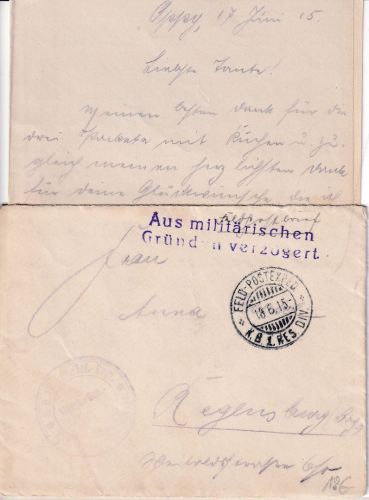 Oppy, 17 Juni 15.
Liebste Tante!
Meinen besten Dank für die
drei Packete mit Kuchen u. zu-
gleich meinen herzlichsten Dank
für deine Glückwünsche die ich
Feldpostbrief
Aus militärischen
Gründen verzögert
Frau
Anna
FELD-POSTEXPED.
18.6.15.
K.B. 1. RES. DIV.
Regensburg
186